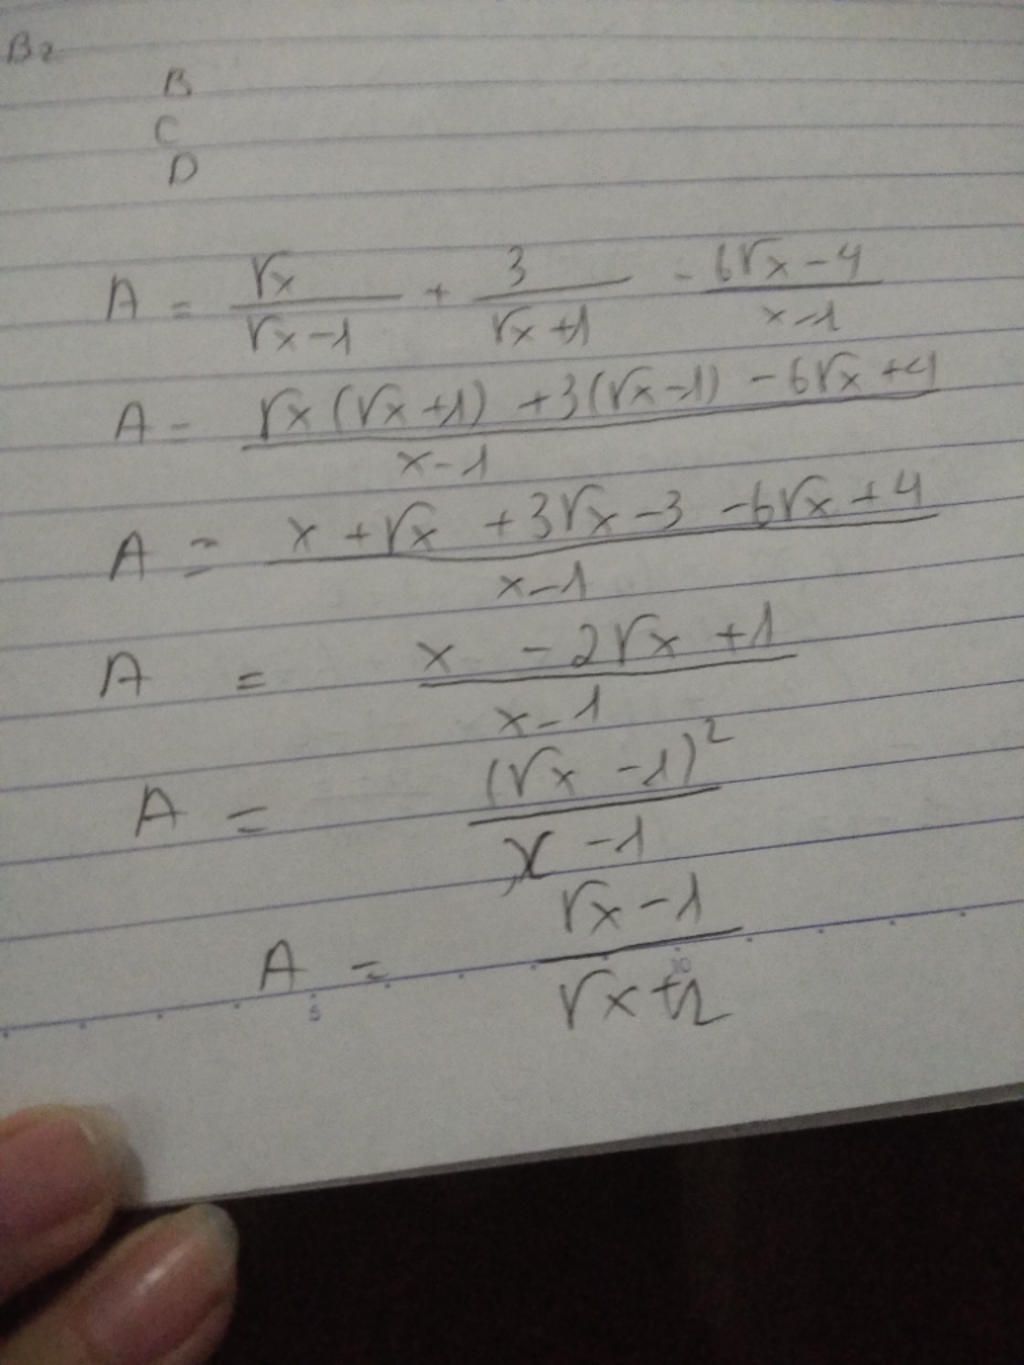 B2
B
C
D
A = √x / (√x - 1) + 3 / (√x + 1) - (6√x - 4) / (x - 1)
A = (√x(√x + 1) + 3(√x - 1) - 6√x + 4) / (x - 1)
A = (x + √x + 3√x - 3 - 6√x + 4) / (x - 1)
A = (x - 2√x + 1) / (x - 1)
A = (√x - 1)² / (x - 1)
A = (√x - 1) / (√x +
5 10